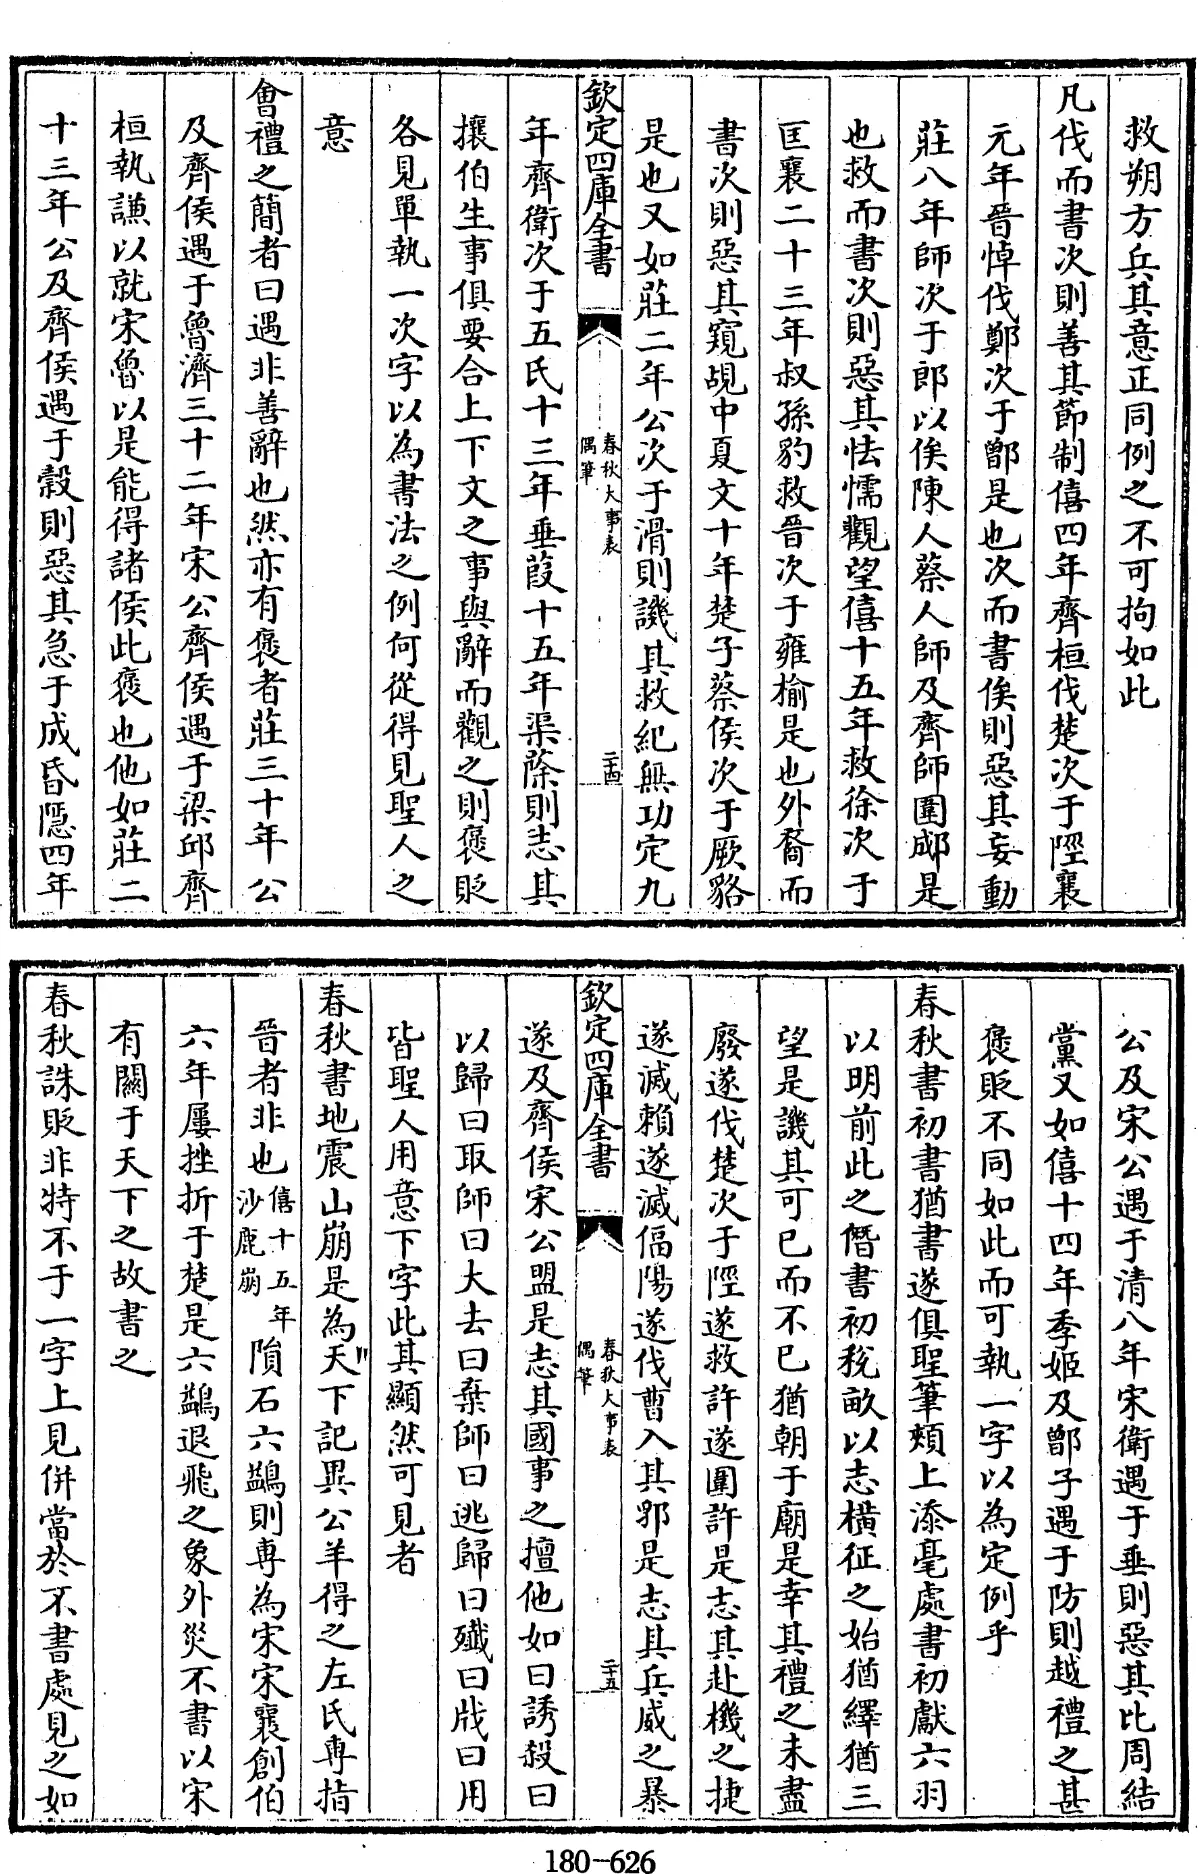 救朔方兵其意正同例之不可拘如此
凡伐而書次則善其節制僖四年齊桓伐楚次于陘襄
元年晉悼伐鄭次于鄫是也次而書俟則惡其妄動
莊八年師次于郎以俟陳人蔡人師及齊師圍郕是
也救而書次則惡其怯懦觀望僖十五年救徐次于
匡襄二十三年叔孫豹救晉次于雍榆是也外裔而
書次則惡其窺覘中夏文十年楚子蔡侯次于厥貉
是也又如莊二年公次于滑則譏其救紀無功定九
欽定四庫全書
春秋大事表
偶筆
二十四
年齊衛次于五氏十三年垂葭十五年渠蒢則志其
攘伯生事俱要合上下文之事與辭而觀之則褒貶
各見單執一次字以為書法之例何從得見聖人之
意
會禮之簡者曰遇非善辭也然亦有褒者莊三十年公
及齊侯遇于魯濟三十二年宋公齊侯遇于梁邱齊
桓執謙以就宋魯以是能得諸侯此褒也他如莊二
十三年公及齊侯遇于穀則惡其急于成昏隱四年
公及宋公遇于清八年宋衛遇于垂則惡其比周結
黨又如僖十四年季姬及鄫子遇于防則越禮之甚
褒貶不同如此而可執一字以為定例乎
春秋書初書猶書遂俱聖筆頰上添毫處書初獻六羽
以明前此之僭書初稅畝以志橫征之始猶繹猶三
望是譏其可已而不已猶朝于廟是幸其禮之未盡
廢遂伐楚次于陘遂救許遂圍許是志其赴機之捷
遂滅賴遂滅偪陽遂伐曹入其郛是志其兵威之暴
欽定四庫全書
春秋大事表
偶筆
二十五
遂及齊侯宋公盟是志其國事之擅他如曰誘殺曰
以歸曰取師曰大去曰棄師曰逃歸曰殲曰戕曰用
皆聖人用意下字此其顯然可見者
春秋書地震山崩是為天下記異公羊得之左氏專指
晉者非也僖十五年沙鹿崩隕石六鷁則專為宋宋襄創伯
六年屢挫折于楚是六鷁退飛之象外災不書以宋
有關于天下之故書之
春秋誅貶非特不于一字上見併當於不書處見之如
180-626